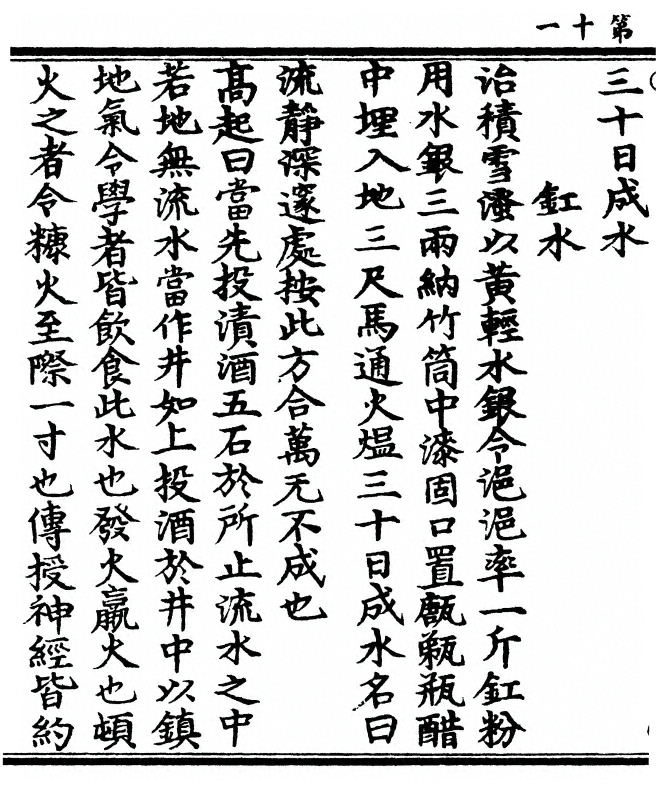 第十一
三十日成水
釭水
治積雪瀋以黃輕水銀令浥浥率一斤釭粉
用水銀三兩納竹筒中漆固口置㼾㼽瓶醋
中埋入地三尺馬通火熅三十日成水名曰
流静深邃處按此方合萬无不成也
髙起曰當先投漬酒五石於所止流水之中
若地無流水當作井如上投酒於井中以鎮
地氣令學者皆飲食此水也發火羸火也頓
火之者令糠火至際一寸也傳授神經皆約